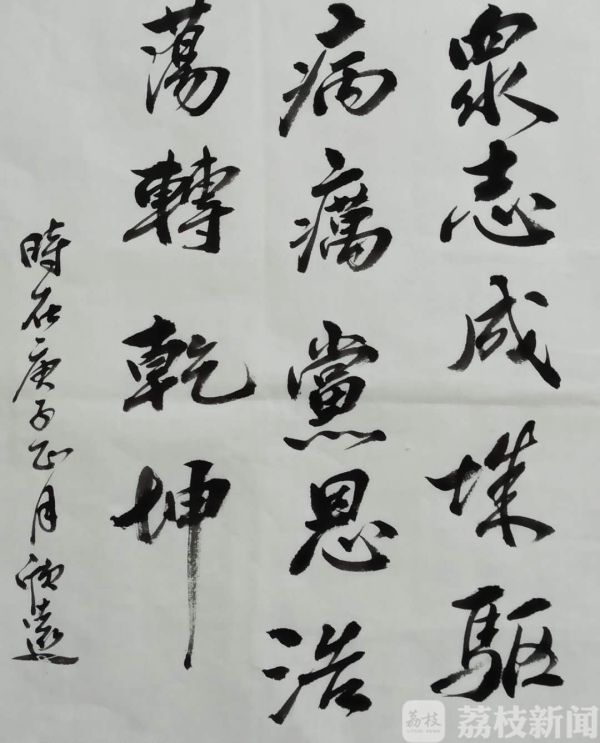 眾志成城驅
病癘黨恩浩
蕩轉乾坤
時在庚子正月
荔枝
荔枝新闻